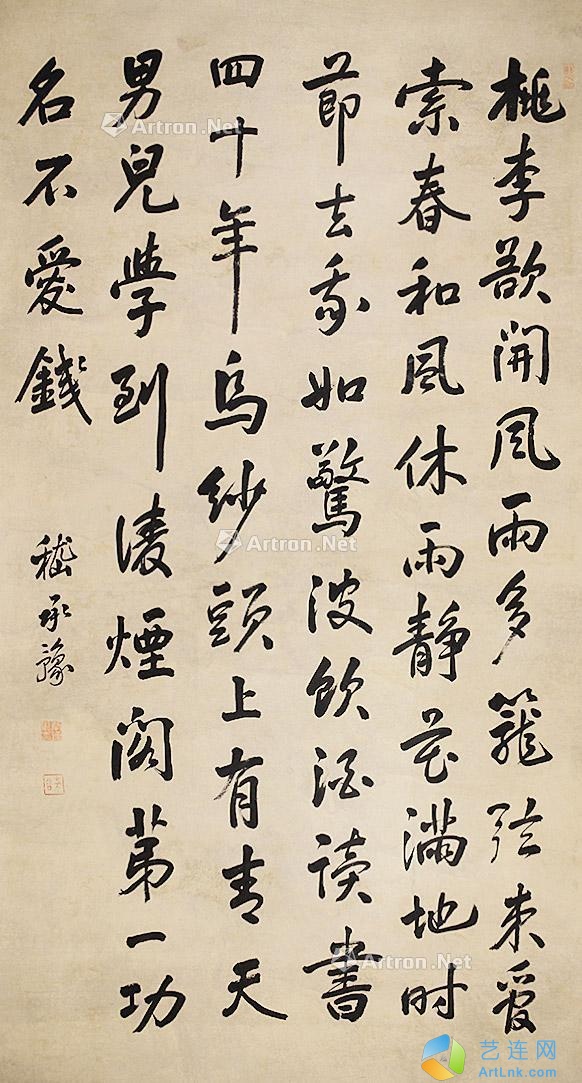 桃李欲開風雨多籠弦來愛
索春和風休雨靜花滿地时
節去我如驚波飲酒读書
四十年烏紗頭上有青天
男兒學到凌煙閣第一功
名不愛錢
嵇承豫
Artron.Net
Artron.Net
Artron.Net
Artron.Net
Artron.Net
艺连网
ArtLnk.com